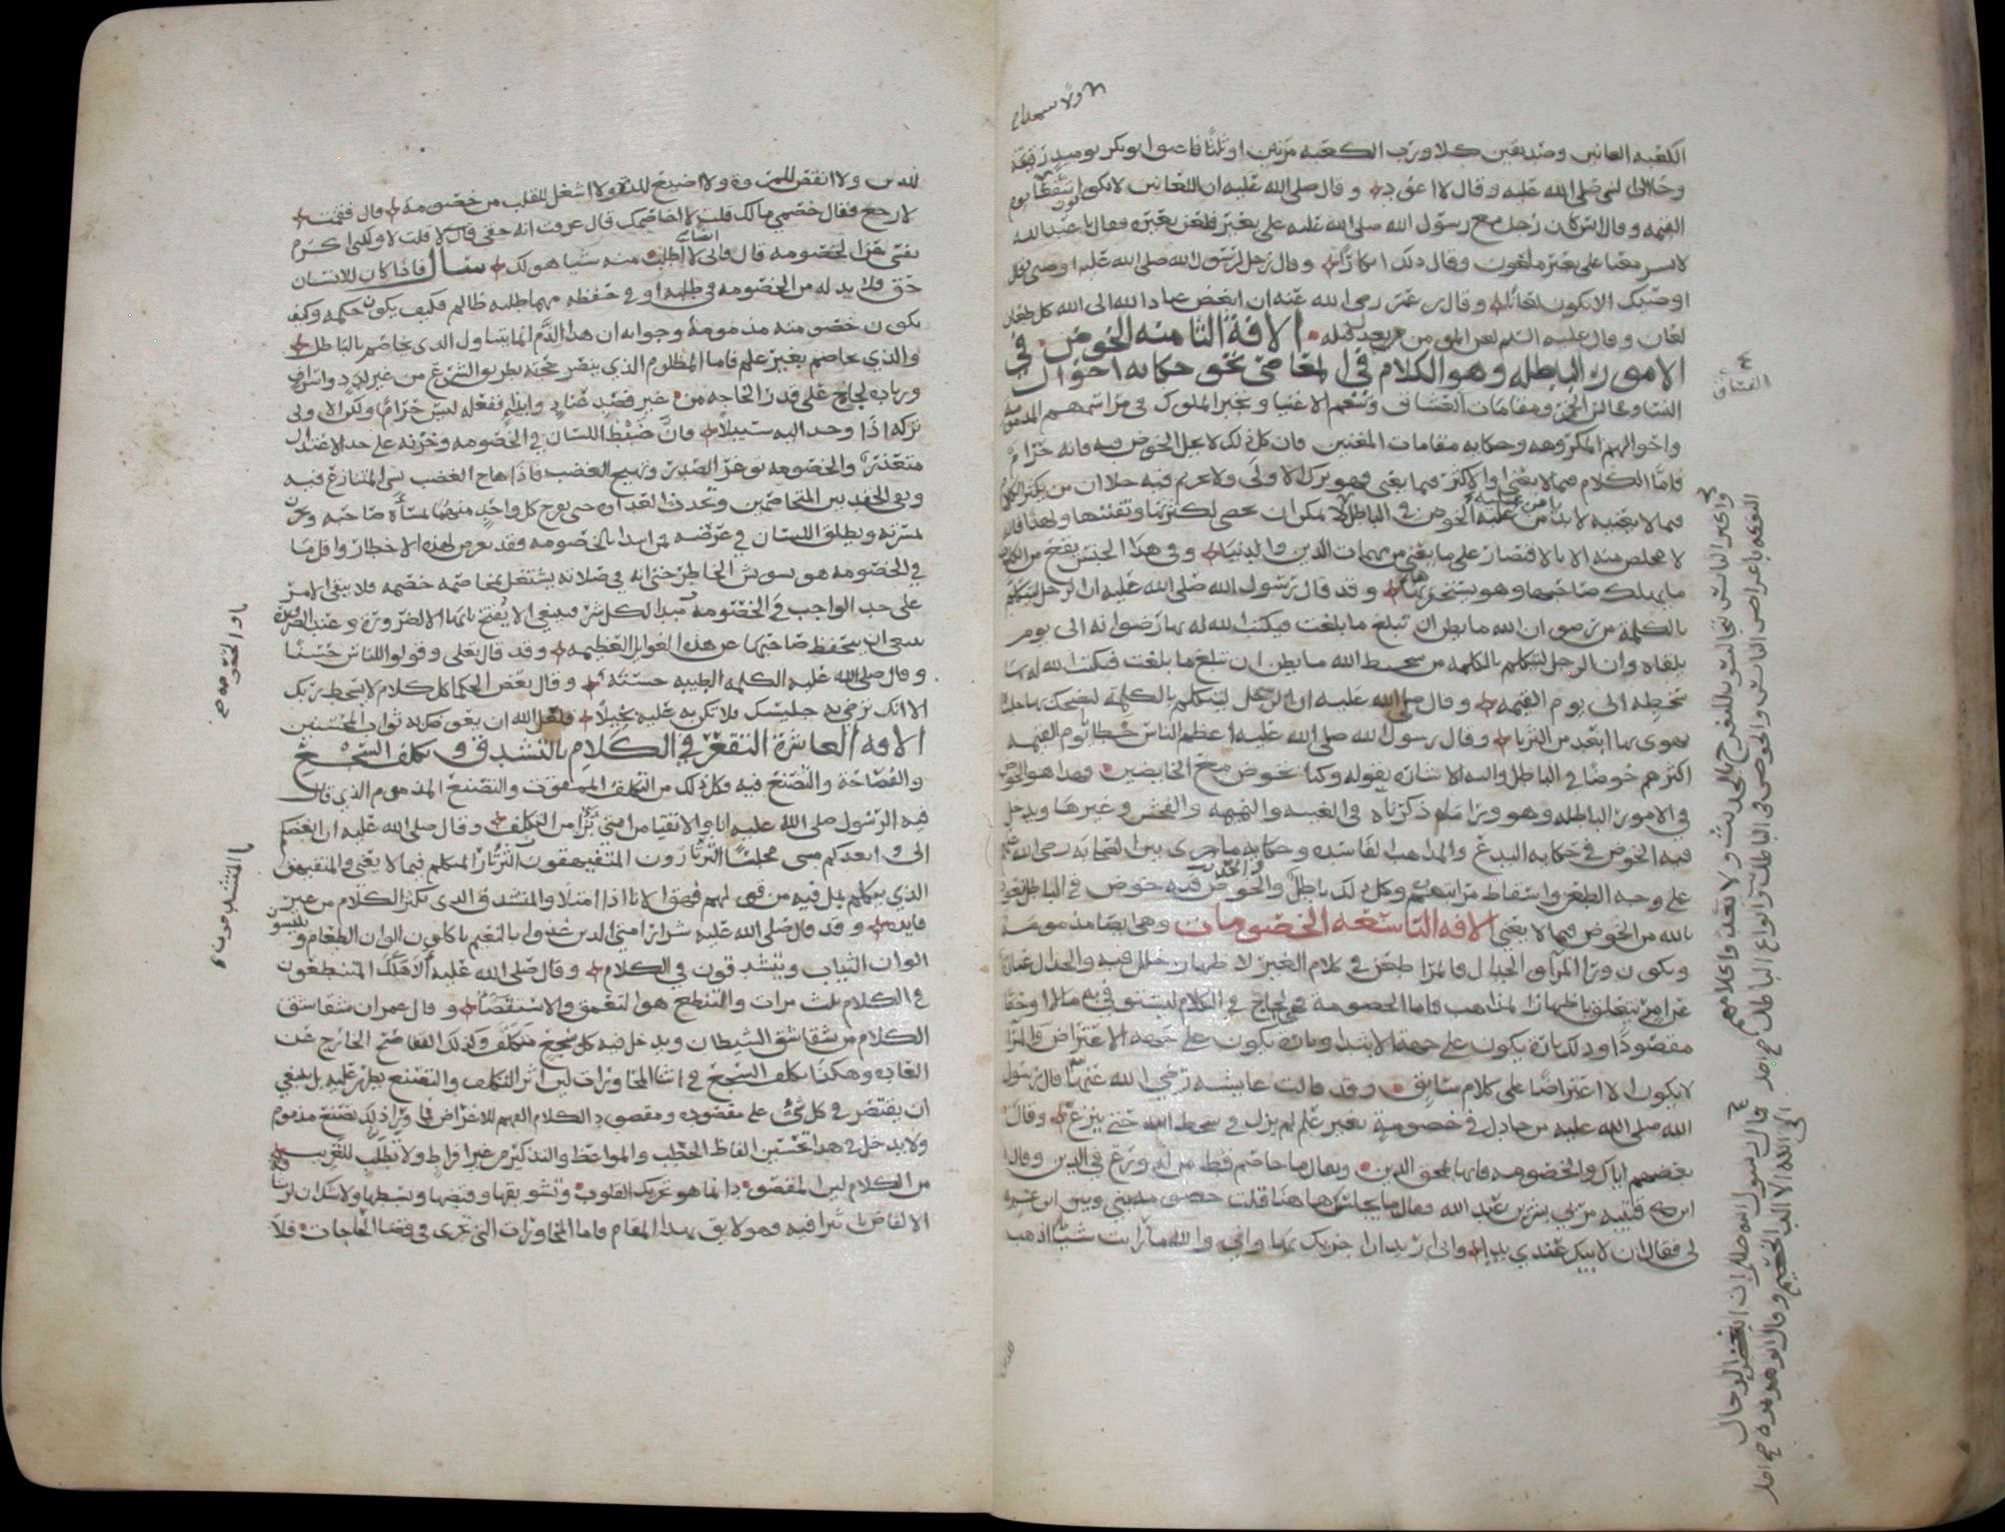 الكعبه العانين وصديقين كلا ورب الكعبه مرتين او ثلثا فاعتق ابوبكر يوميذ رقيقه
وجا الى النبي صلى الله عليه وقال لا اعود وقال صلى الله عليه ان اللعانين لا يكونون شفعا يوم
القيمه وقال انس كان رجل مع رسول الله صلى الله عليه على بعير فلعن بعيره فقال يا عبد الله
لا تسر معنا على بعير ملعون وقال ذلك انكارا وقال رجل لرسول الله صلى الله عليه اوصني فقال
اوصيك الا تكون لعانا وقال بن عمر رضى الله عنه ان ابغض عباد الله الى الله كل طعان
لعان وقال عليه السلم لعن المومن يعدل قتله الافة الثامنه الخوض في
الامور الباطله وهو الكلام في المعاصي نحو حكايه احوال
النسا ومجالس الخمر ومقامات الفساق وتنعم الاغنيا وتجبر الملوك في مراسمهم المذمومه
واحوالهم المكروهه وحكايه مقامات المغنين فان كل ذلك لا يحل الخوض فيه فانه حرام
فاما الكلام فيما لا يعني او الاكثر فيما يعني فهو ترك الاولى ولا تحريم فيه خلا ان من يكثر الكلام
فيما لا يعنيه لا يومن عليه الخوض في الباطل لا يمكن ان تحصى لكثرتها وتفننها ولهذا فانه
لا مخلص منه الا بالاقتصار على ما يعني من مهمات الدين والدنيا وفي هذا الجنس يقع من الكلام
ما يهلك صاحبها وهو يستحقرها وقد قال رسول الله صلى الله عليه ان الرجل ليتكلم
بالكلمة من رضوان الله ما يظن ان تبلغ ما بلغت فيكتب الله له بها رضوانه الى يوم
يلقاه وان الرجل ليتكلم بالكلمه من سخط الله ما يظن ان تبلغ ما بلغت فيكتب الله له بها
سخطه الى يوم القيمه وقال صلى الله عليه ان الرجل ليتكلم بالكلمة ليضحك بها جلساه
يهوى بها ابعد من الثريا وقال رسول الله صلى الله عليه اعظم الناس خطايا يوم القيمه
اكثرهم خوضا في الباطل واليه الاشارة بقوله وكنا نخوض مع الخايضين وهذا هو الخوض
في الامور الباطله وهو ورا ما ذكرناه في الغيبه والنميمه والفحش وغيرها ويدخل
فيه الخوض في حكايه البدع والمذاهب الفاسده وحكايه ما جرى بين الصحابه رضى الله عنهم
على وجه الطعن واسقاط مراتبهم وكل ذلك باطل والخوض فيه خوض في الباطل نعوذ
بالله من الخوض فيما لا يعني الافه التاسعه الخصومات وهي ايضا مذمومة
ويكون ورا المرا والجدال فالمرا طعن في كلام الغير لاظهار خلل فيه والجدال عبارة
عن امر يتعلق باظهار المذاهب فاما الخصومة فهي لجاج في الكلام ليستوفي به مالا او حقا
مقصودا وذلك تارة يكون على جهة الابتدا وتارة يكون على جهه الاعتراض والمرا
لا يكون الا اعتراضا على كلام سابق وقد قالت عايشه رضي الله عنها قال رسول
الله صلى الله عليه من جادل في خصومة بغير علم لم يزل في سخط الله حتى ينزع وقال
بعضهم اياك والخصومه فانها تمحق الدين ويقال ما خاصم قط من له ورع في الدين وقال
ابن قتيبه مر بي بشر بن عبد الله فقال ما يجلسك هاهنا قلت خصومه بيني وبين ابن عم
لى فقال ان لابيك عندي يدا واني اريد ان اجزيك بها واني والله ما رايت شيا اذهب
للدين ولا انقص للمروة ولا اضيع للذه ولا اشغل للقلب من خصومة قال فقمت
لارجع فقال خصمي مالك قلت لا اخاصمك قال عرفت انه حقي قال لا قلت لا ولكني اكرم
نفسي عن الخصومه قال فاني لا اطلب منه شيا هو لك سال فاذا كان للانسان
حق فلا بد له من الخصومه في طلبه او في حفظه مهما طلبه ظالم فكيف يكون حكمه وكيف
يكون خصومته مذمومة وجوابه ان هذا الذم انما يتناول الذي يخاصم بالباطل
والذي يخاصم بغير علم فاما المظلوم الذي ينصر حجته بطريق الشرع من غير لدد واسراف
وزياده لجاج على قدر الحاجه من غير قصد عناد وايذا ففعله ليس حراما ولكن الاولى
تركه اذا وجد اليه سبيلا فان ضبط اللسان في الخصومه وخزنه على حد الاعتدال
متعذر والخصومه توغر الصدر وتهيج الغضب فاذا هاج الغضب نسى المتنازع فيه
وبقى الحقد بين المتخاصمين وتحدث العداوه حتى يفرح كل واحد منهما بمساة صاحبه ويحزن
لمسرته ويطلق اللسان في عرضه فمن ابتدا بالخصومه فقد تعرض لهذه الاخطار واقل ما
في الخصومه هو تشويش الخاطر حتى انه في صلاته يشتغل بمخاصمة خصمه فلا يبقى الامر
على حد الواجب في الخصومة مبدا لكل شر فينبغي الا يفتح بابها الا لضرورة وعند الضرورة
ينبغى ان يتحفظ صاحبها عن هذه الغوايل العظيمه وقد قال تعلى وقولوا للناس حسنا
وقال صلى الله عليه الكلمه الطيبه حسنة وقال بعض الحكما كل كلام لا يسخط ربك
الا انك ترضي به جليسك فلا تكن به عليه بخيلا فلعل الله ان يعوضك به ثواب المحسنين
الافه العاشرة التقعر في الكلام بالتشدق وتكلف السجع
والفصاحة والتصنع فيه وكل ذلك من التكلف الممقوت والتصنع المذموم الذي قال
فيه الرسول صلى الله عليه انا والاتقيا من امتي برا من التكلف وقال صلى الله عليه ان ابغضكم
الى وابعدكم منى مجلسا الثرثارون المتفيهقون الثرثار المتكلم فيما لا يعني والمتفيهق
الذي يتكلم بمل فيه من قولهم فهق الانا اذا امتلا والمتشدق الذى يكثر الكلام من غير
فايده وقد قال صلى الله عليه شرار امتي الذين غذوا بالنعيم ياكلون الوان الطعام ويلبسون
الوان الثياب ويتشدقون في الكلام وقال صلى الله عليه الا هلك المتنطعون
في الكلام ثلث مرات والتنطع هو التعمق والاستقصا وقال عمر ان شقاشق
الكلام من شقاشق الشيطان ويدخل فيه كل سجع متكلف وكذلك التفاصح الخارج عن
العاده وهكذا تكلف السجع في اثنا المحاورات ليس اثر التكلف والتصنع يظهر عليه بل ينبغي
ان يقتصر في كل شئ على مقصوده ومقصود الكلام الفهم للاغراض فما ورا ذلك تصنع مذموم
ولا يدخل في هذا تحسين الفاظ الخطب والمواعظ والتذكير من غير افراط ولا تطلب للغريب
من الكلام ليس المقصود انما هو تحريك القلوب وتشويقها وقبضها وبسطها ولا شك ان لرشاقه
الالفاظ تاثيرا فيه فهو لايق بهذا المقام فاما المحاورات التى تجرى في قضا الحاجات فلا
الفساق
واكثر الناس يتجالسون للتفرج بالحديث ولا يعدوا كلامهم
التفكه باعراض الناس والخوض في الباطل وانواع الباطل
قال رسول الله صلى ان ابغض الرجال
الى الله الالد الخصم وقال ابو هريره